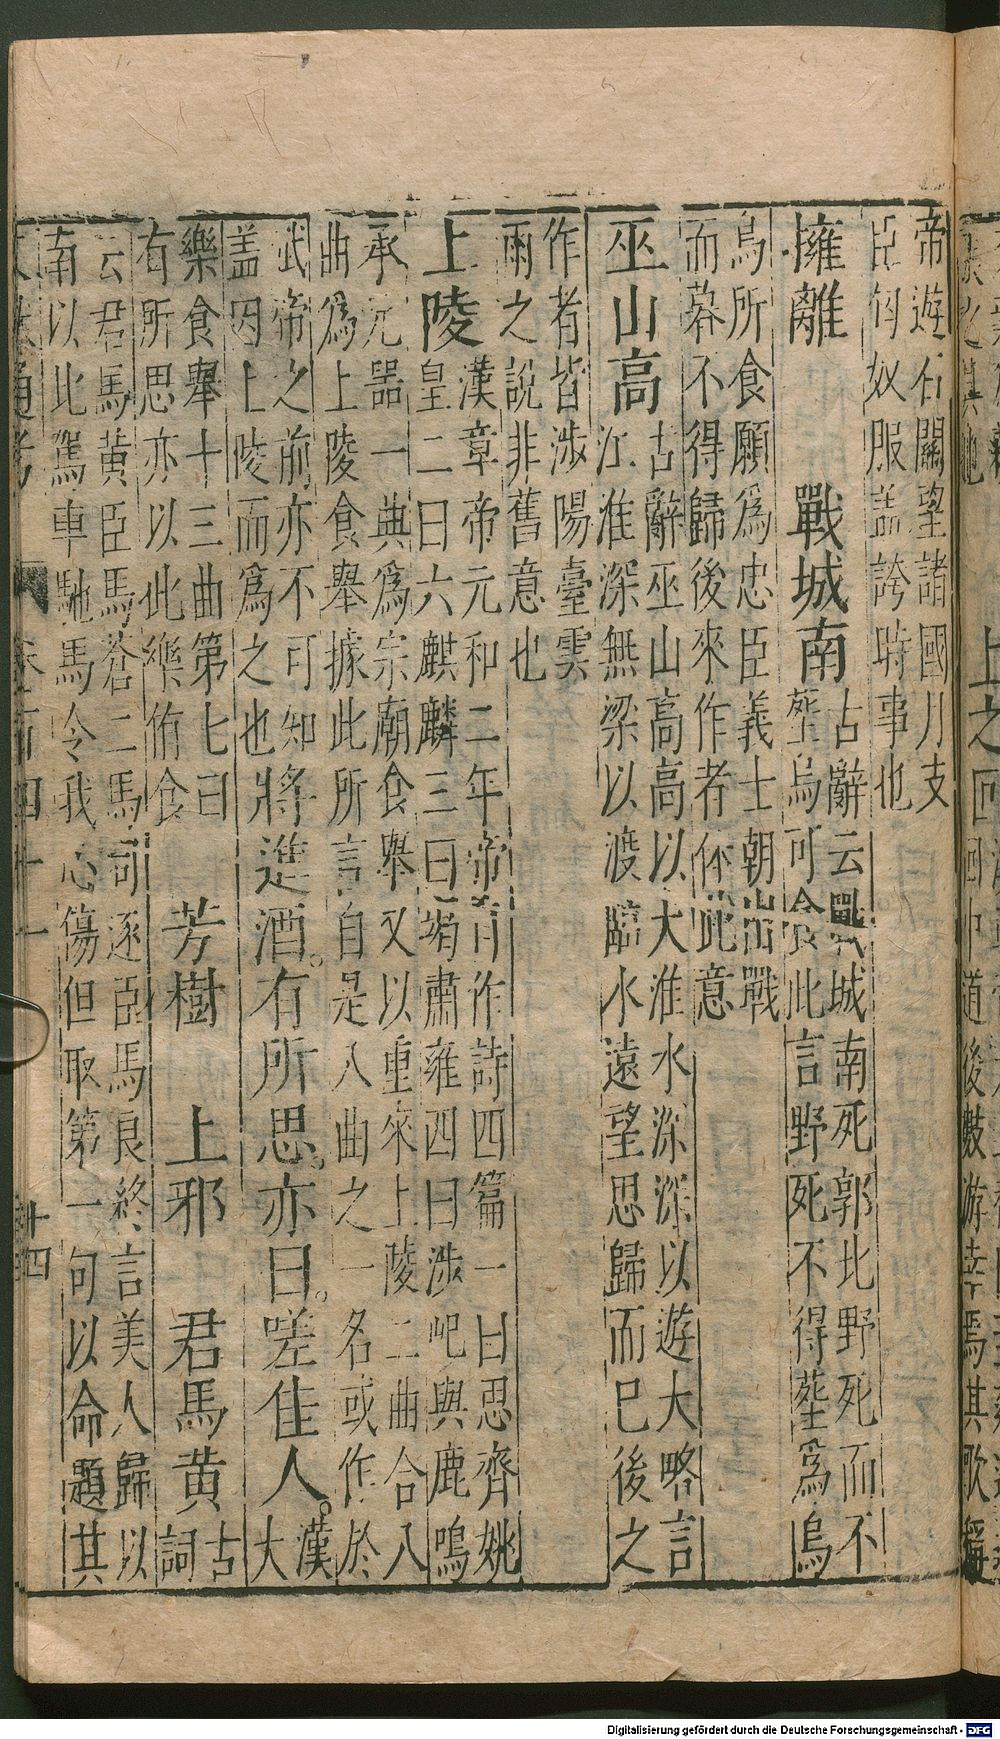 帝遊石關望諸國月支
臣匈奴服蓋誇時事也
擁離 戰城南
古辭云戰城南死郭北野死而不
葬烏可食此言野死不得葬爲烏
鳥所食願爲忠臣義士朝出戰
而暮不得歸後來作者作此意
巫山高
古辭巫山高高以大淮水深深以遊大略言
江淮深無梁以渡臨水遠望思歸而已後之
作者皆涉陽臺雲
雨之說非舊意也
上陵
漢章帝元和二年帝自作詩四篇一曰思齊姚
皇二曰六麒麟三曰竭肅雍四曰涉屺與鹿鳴
承元器一典爲宗廟食舉又以重來上陵二曲合八
曲爲上陵食舉據此所言自是八曲之一名或作於
武帝之前亦不可知
蓋因上陵而爲之也
將進酒。有所思。亦曰。嗟佳人。
漢
大
樂食舉十三曲第七曰
有所思亦以此樂侑食
芳樹 上邪 君馬黃
古
詞
云君馬黃臣馬蒼二馬同逐臣馬良終言美人歸以
南以此駕車馳馬令我心傷但取第一句以命題其
通考 卷一百四十一 十四
上之回
Digitalisierung gefördert durch die Deutsche Forschungsgemeinschaft - DFG